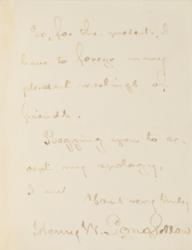 So, for the present, I
have to forego many
pleasant meetings of
friends.
Begging you to ac-
cept my apology,
I am
Yours very truly
Henry W. Longfellow